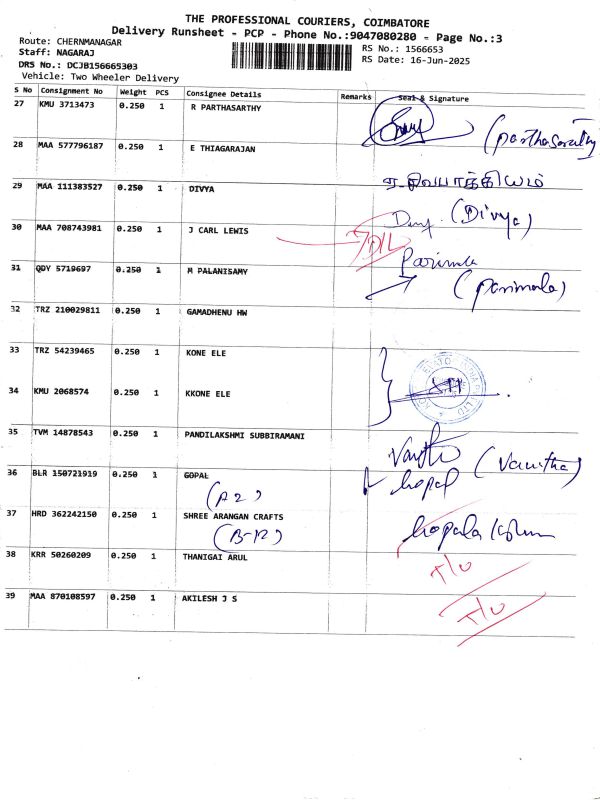 THE PROFESSIONAL COURIERS, COIMBATORE
Delivery Runsheet - PCP - Phone No.:9047080280 - Page No.:3
Route: CHERNMANAGAR
RS No.: 1566653
Staff: NAGARAJ
RS Date: 16-Jun-2025
DRS No.: DCJB156665303
Vehicle: Two Wheeler Delivery
S No Consignment No Weight PCS Consignee Details Remarks Seal & Signature
27 KMU 3713473 0.250 1 R PARTHASARTHY
(parthasarathy
28 MAA 577796187 0.250 1 E THIAGARAJAN
29 MAA 111383527 0.250 1 DIVYA
(Divya)
30 MAA 708743981 0.250 1 J CARL LEWIS
Parimala
31 QDY 5719697 0.250 1 M PALANISAMY
(parimala)
32 TRZ 210029811 0.250 1 GAMADHENU HW
33 TRZ 54239465 0.250 1 KONE ELE
34 KMU 2068574 0.250 1 KKONE ELE
35 TVM 14878543 0.250 1 PANDILAKSHMI SUBBIRAMANI
(Vanitha)
36 BLR 150721919 0.250 1 GOPAL
Gopal
(A2)
37 HRD 362242150 0.250 1 SHREE ARANGAN CRAFTS
(B-12)
38 KRR 50260209 0.250 1 THANIGAI ARUL
T/U
39 MAA 870108597 0.250 1 AKILESH J S
T/U